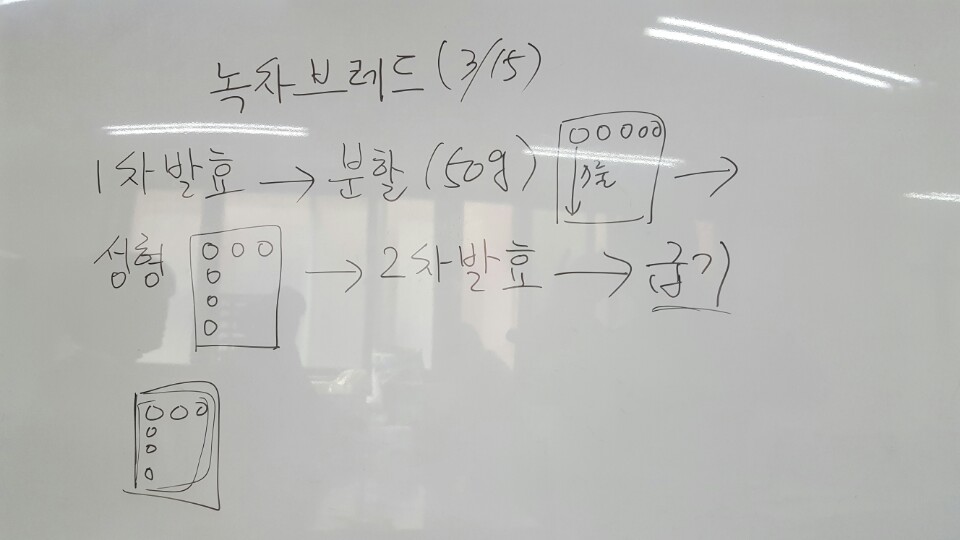 녹차브레드 (3/15)
1차발효 → 분할 (50g) →
성형 → 2차발효 → 굽기